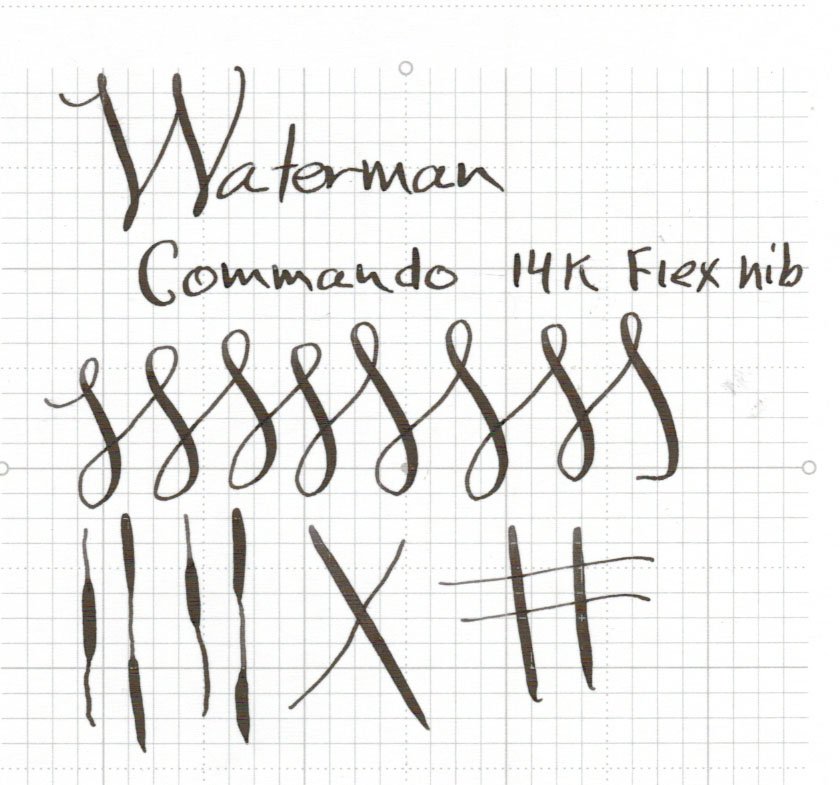 Waterman
Commando 14K Flex nib